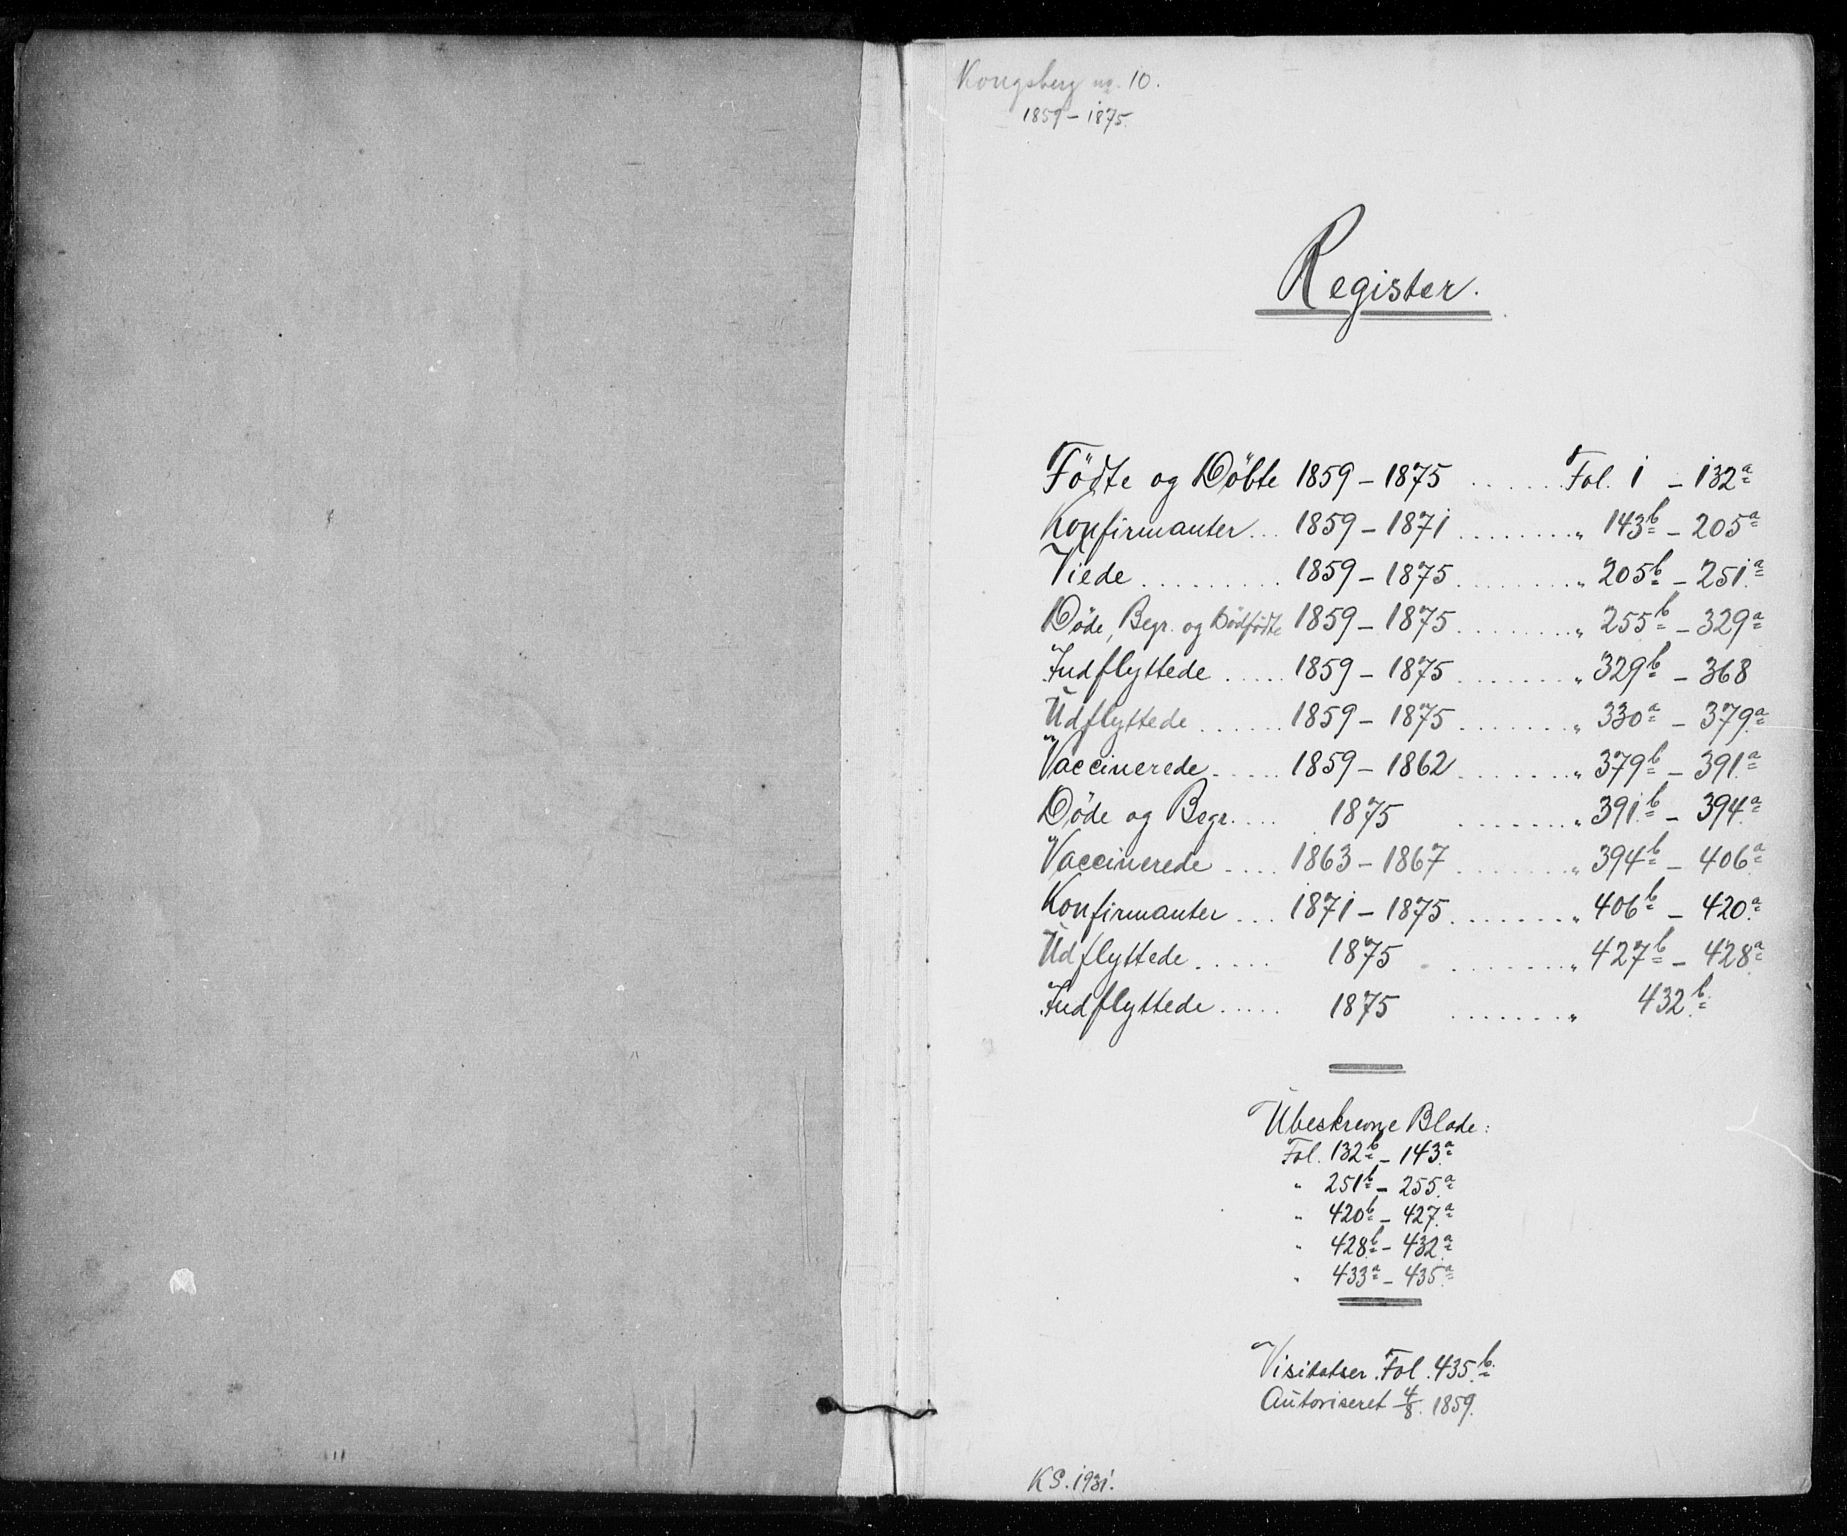 Kongsberg nr. 10.
1859 – 1875.
Register.
Födte og Döbte 1859 – 1875 ...... Fol. 1 – 132a
Konfirmanter ... 1859 – 1871 ........ " 143b – 205a
Viede .......... 1859 – 1875 ........ " 205b – 251a
Döde, Begr. og Dödfödte 1859 – 1875 ........ " 255b – 329a
Indflyttede ..... 1859 – 1875 ........ " 329b – 368
Udflyttede ...... 1859 – 1875 ........ " 330a – 379a
Vaccinerede ..... 1859 – 1862 ........ " 379b – 391a
Döde og Begr. ... 1875 ....... " 391b – 394a
Vaccinerede .... 1863 – 1867 ........ " 394b – 406a
Konfirmanter ... 1871 – 1875 ........ " 406b – 420a
Udflyttede ..... 1875 ........ " 427b – 428a
Indflyttede ..... 1875 ........ " 432b
Ubeskrevne Blade:
Fol. 132b – 143a
" 251b – 255a
" 420b – 427a
" 428b – 432a
" 433a – 435a
Visitatser Fol. 435b
Autoriseret 4/8. 1859.
KS. 1931.